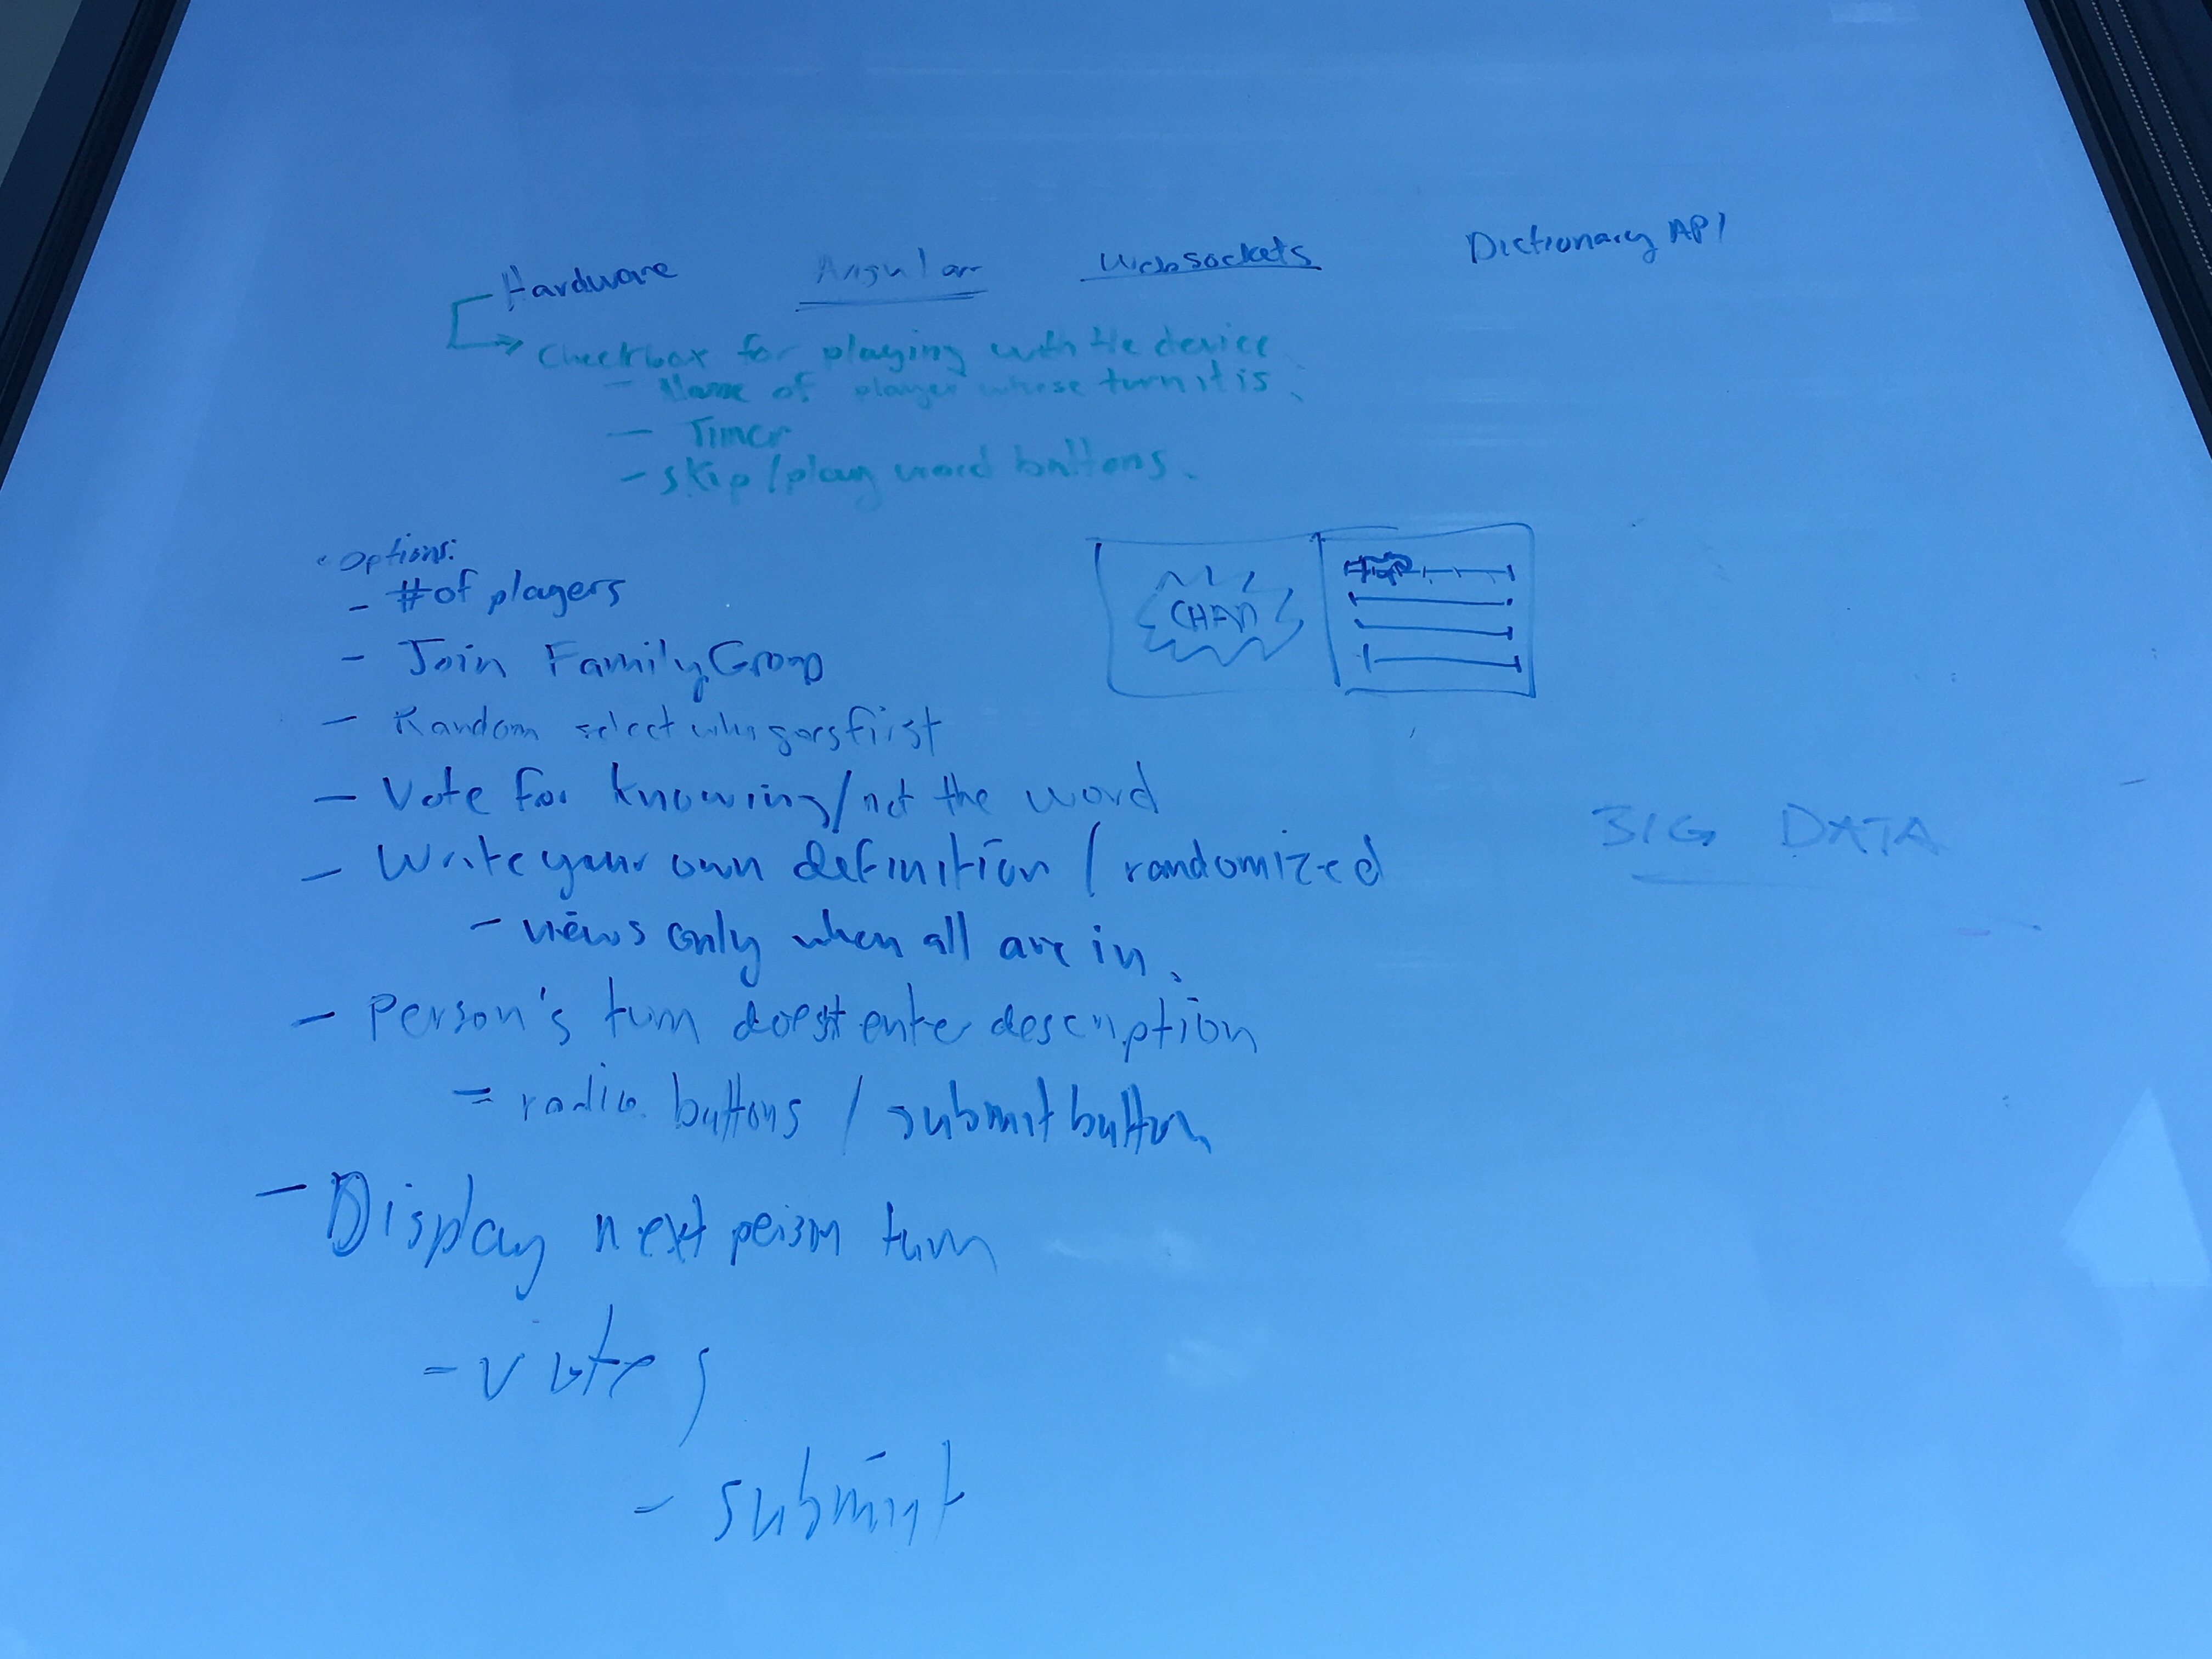 Hardware Angular Websockets Dictionary API
Checkbox for playing with the device
- Name of player whose turn it is.
- Timer
- skip/play word buttons.
• Options:
- # of players
- Join Family Group
- Random select who goes first
- Vote for knowing/not the word
- Write your own definition / randomized
- views only when all are in.
- Person's turn doesn't enter description
= radio buttons / submit button
- Display next person turn
= votes
- submit
CHAD
BIG DATA